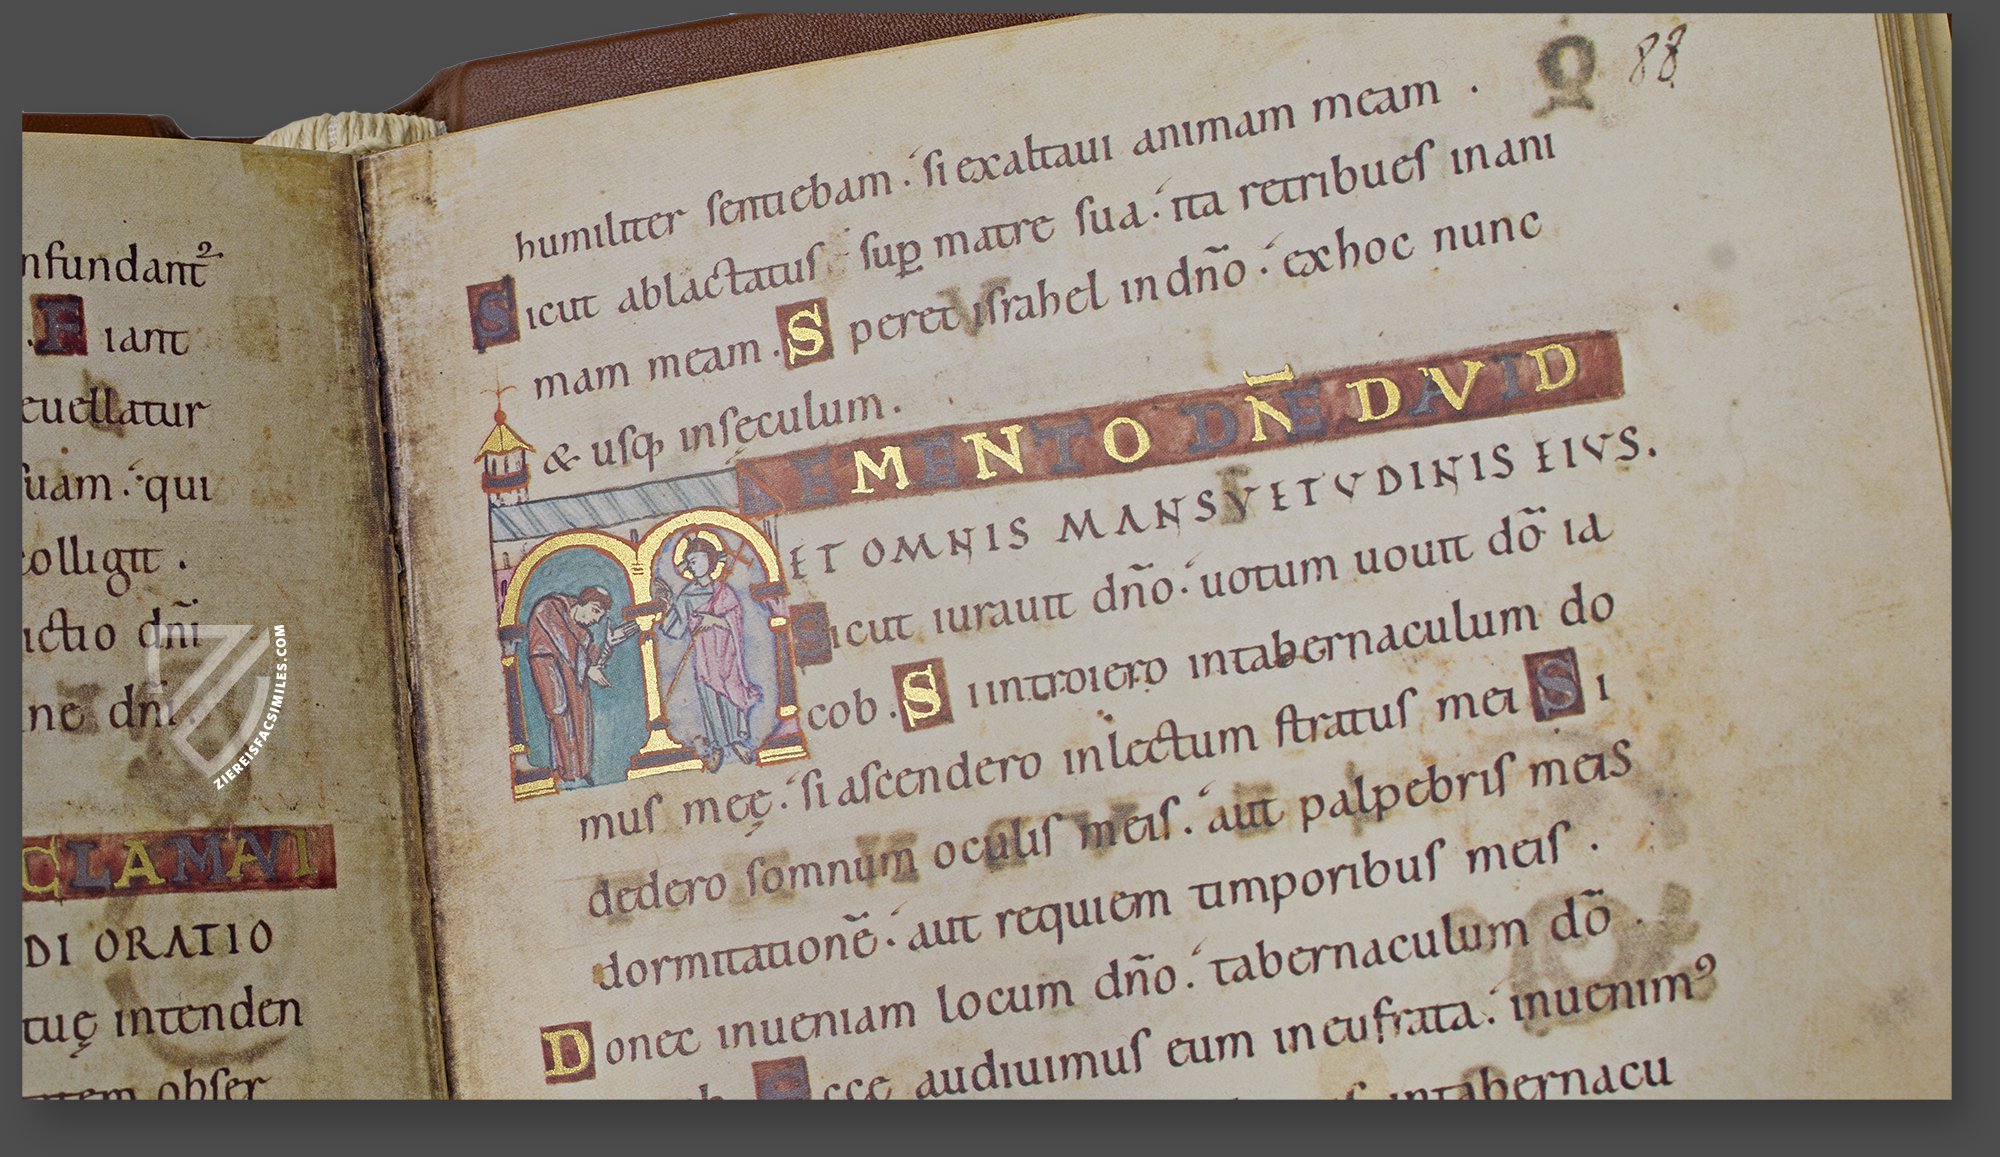 nfundant
F iant
euellatur
suam. qui
olligit.
ictio dñi
ne dñi.
CLAMAVI
DI ORATIO
tuę intenden
tem obser
88
humiliter sentiebam. si exaltaui animam meam.
Sicut ablactatus sup matre sua. ita retribues in ani
mam meam. Speret israhel in dño. ex hoc nunc
& usq; in seculum.
MEMENTO DÑE DAVID
ET OMNIS MANSVETVDINIS EIVS.
Sicut iurauit dño. uotum uouit dõ ia
cob. Si introiero in tabernaculum do
mus meę. si ascendero in lectum stratus mei Si
dedero somnum oculis meis. aut palpebris meis
dormitationẽ. aut requiem timporibus meis.
Donec inueniam locum dño. tabernaculum dõ
Ecce audiuimus eum in eufrata. inuenim⁹
in tabernacu
ZIEREISFACSIMILES.COM